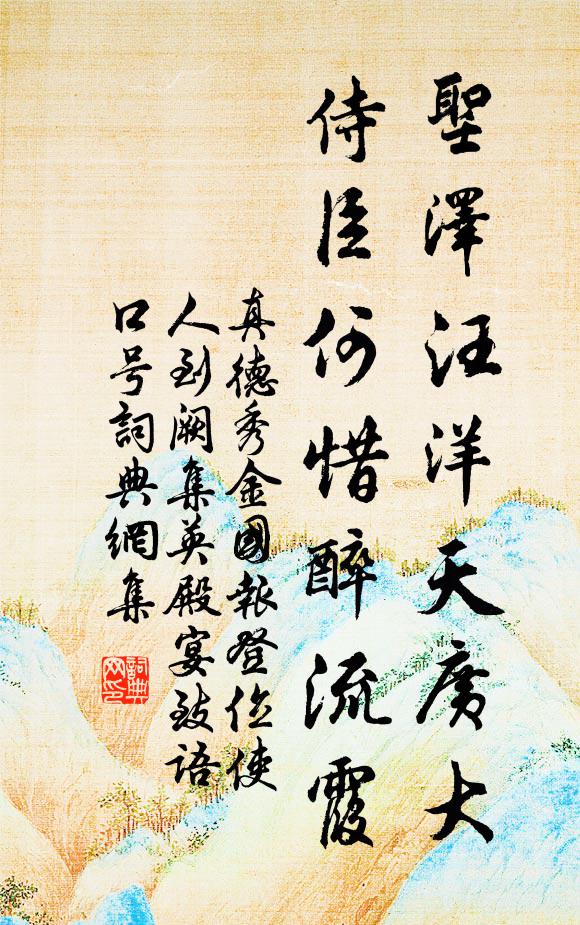 聖澤汪洋天廣大
侍臣何惜醉流霞
真德秀金國報登位使
人到阙集英殿宴致語
口号詞典網集
詞典网印